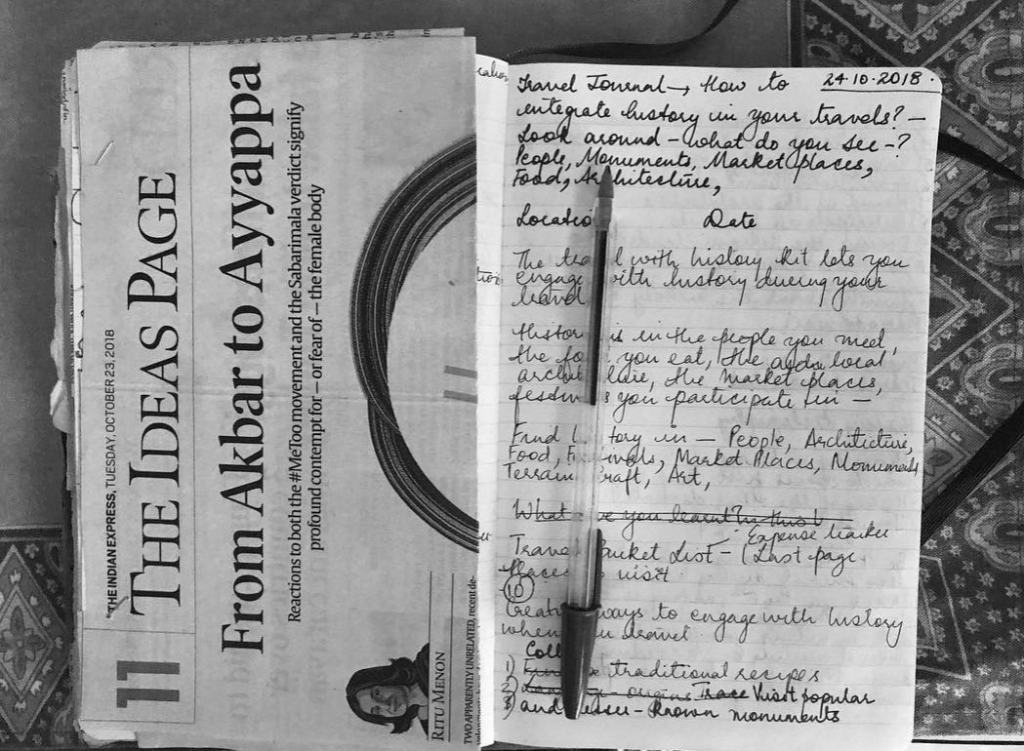 11
THE INDIAN EXPRESS, TUESDAY, OCTOBER 23, 2018
THE IDEAS PAGE
From Akbar to Ayyappa
Reactions to both the #MeToo movement and the Sabarimala verdict signify
profound contempt for — or fear of — the female body
RITU MENON
TWO APPARENTLY UNRELATED, recent de-
24·10·2018.
Travel Journal → How to
integrate history in your travels? —
Look around – what do you see –?
People, Monuments, Market places,
Food, Architecture,
Location Date
The travel with history kit lets you
engage with history during your
travel
History is in the people you meet,
the food you eat, the local
architecture, the market places,
festivals you participate in —
Find history in — People, Architecture,
Food, Festivals, Market Places, Monuments
Terrain, Craft, Art,
What have you learnt in this
Expense tracker
Travel Bucket List – (Last page
Places to visit
10
Creative ways to engage with history
when you travel.
Coll
1) traditional recipes
2) origins Trace Visit popular
3) and lesser-known monuments